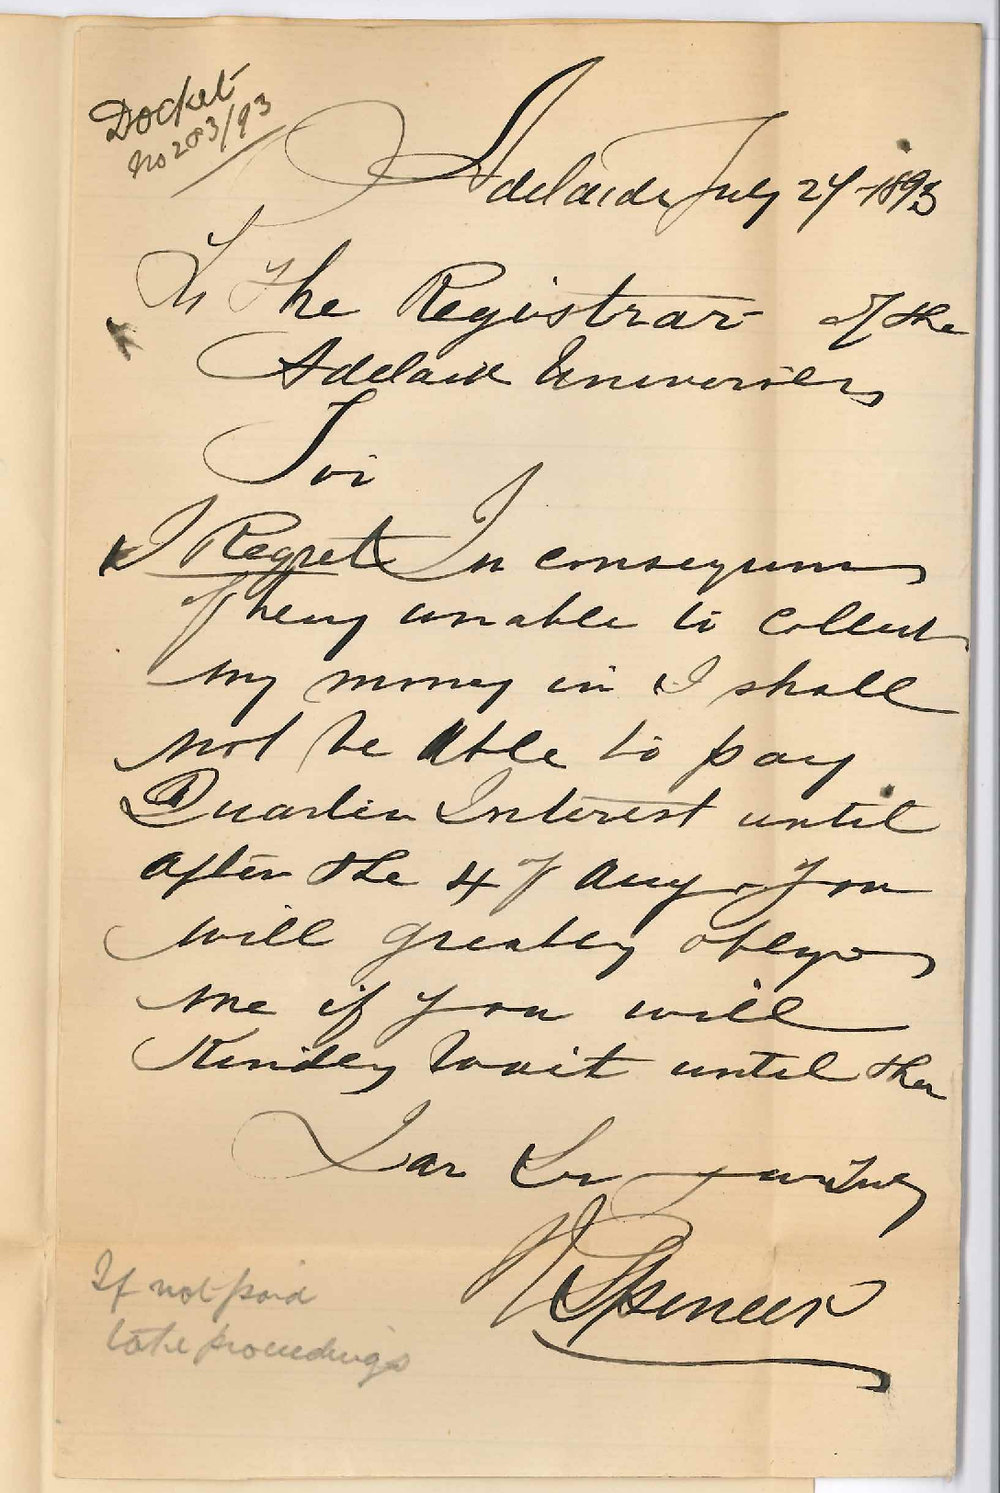 Docket
No 283/93
Adelaide July 24 - 1893
To The Registrar of the
Adelaide University
Sir
I Regret In consequence
of being unable to collect
my money in I shall
not be Able to pay
Quarter Interest until
after the 4 of Aug - you
will greatly oblige
me if you will
Kindly Wait until then
I am Sir yours Truly
Spencer
If not paid
take proceedings